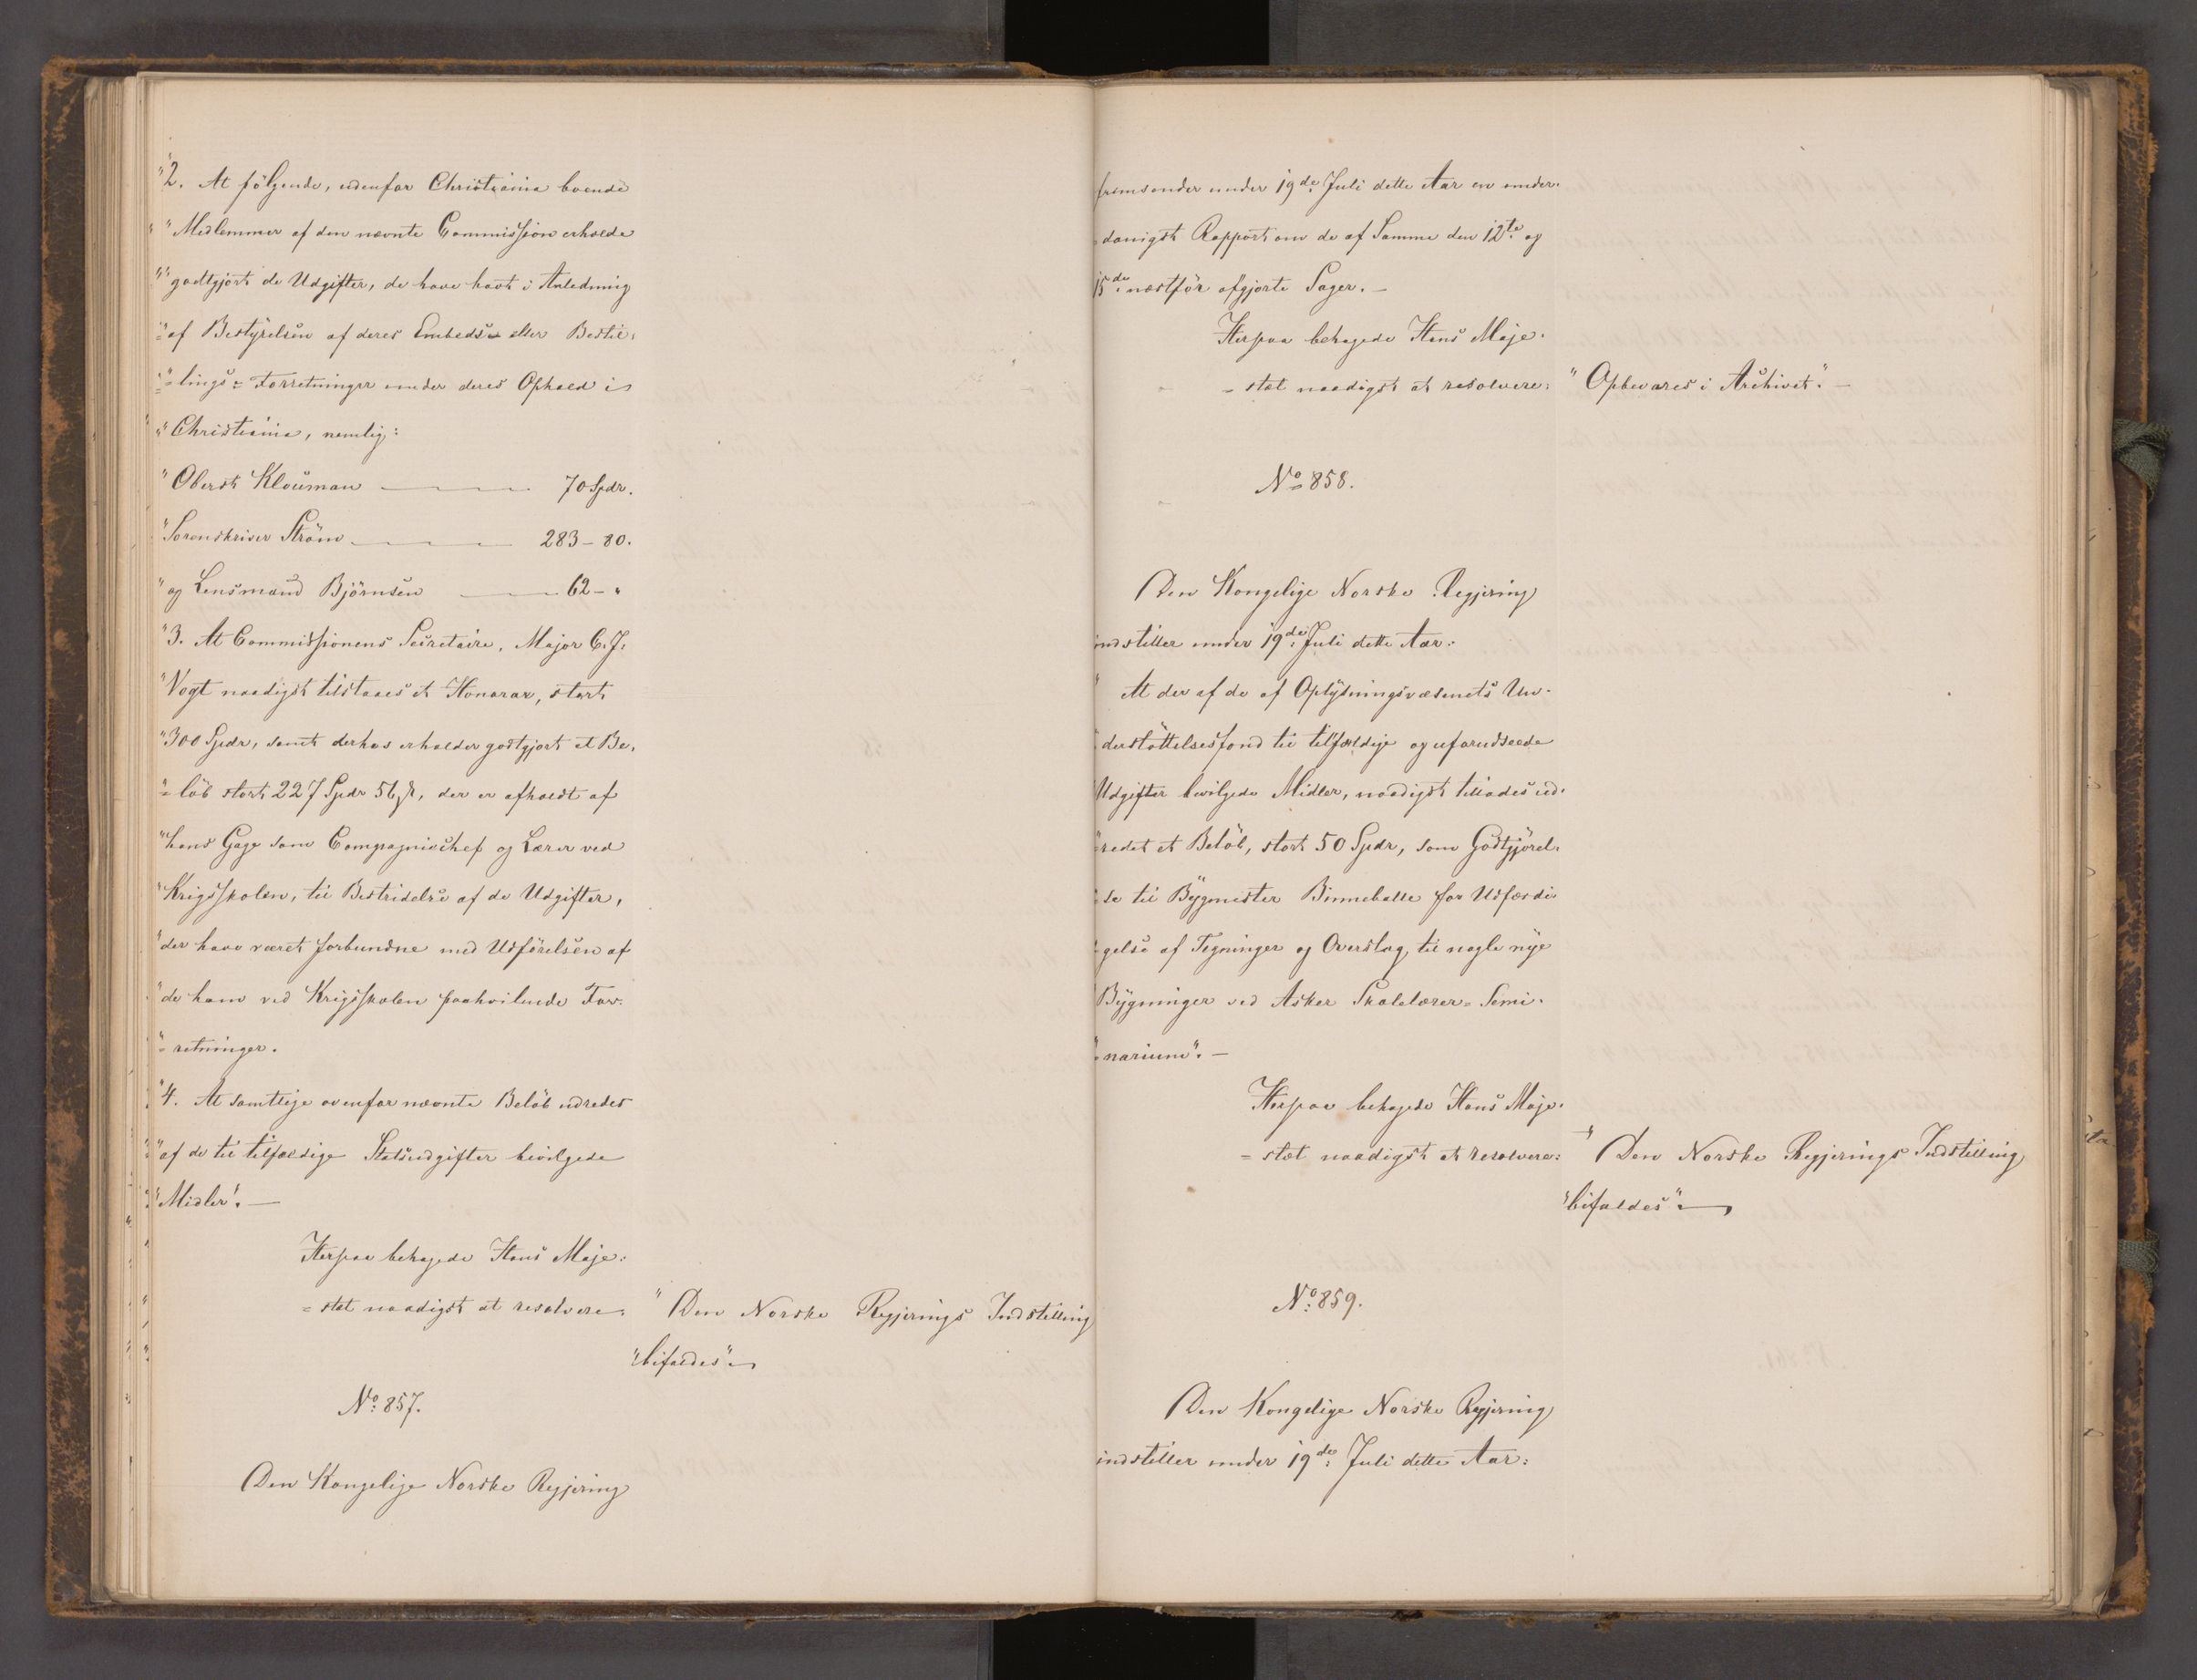 "2. At følgende, udenfor Christiania boende
" "Medlemmer af den nævnte Commission erholde
" "godtgjort de Udgifter, de have havt i Anledning
"=af Bestyrelsen af deres Embeds= eller Bestil=
"=lings=Forretninger under deres Ophold i
" "Christiania, nemlig:
"Oberst Klouman ——— 70 Spdr.
"Sorenskriver Strøm ——— 283 - 80.
"og Lensmand Bjørnsen ——— 62 - "
"3. At Commissionens Secretaire, Major C. J.
"Vogt naadigst tilstaaes et Honorar, stort
"300 Spdr, samt derhos erholder godtgjort et Be=
"=løb stort 227 Spdr 56 ß, der er afholdt af
"hans Gage som Compagniechef og Lærer ved
"Krigsskolen, til Bestridelse af de Udgifter,
"der have været forbundne med Udførelsen af
"de ham ved Krigsskolen paahvilende For=
"=retninger.
"4. At samtlige ovenfor nævnte Beløb udredes
" "af de til tilfældige Statsudgifter bevilgede
" "Midler". —
Herpaa behagede Hans Maje=
=stæt naadigst at resolvere: "Den Norske Regjerings Indstilling
"bifaldes". —
No. 857.
Den Kongelige Norske Regjering
fremsender under 19de Juli dette Aar en under=
=danigst Rapport om de af Samme den 12te og
15de næstfør afgjorte Sager. —
Herpaa behagede Hans Maje=
=stæt naadigst at resolvere: "Opbevares i Archivet". —
No. 858.
Den Kongelige Norske Regjering
indstiller under 19de Juli dette Aar:
"At der af de af Oplysningsvæsenets Un=
"derstøttelsesfond til tilfældige og uforudseede
"Udgifter bevilgede Midler, naadigst tillades ud=
"=redet et Beløb, stort 50 Spdr, som Godtgjørel=
"=se til Bygmester Binneballe for Udfærdi=
"=gelse af Tegninger og Overslag til nogle nye
"Bygninger ved Asker Skolelærer=Semi=
"=narium". —
Herpaa behagede Hans Maje=
=stæt naadigst at resolvere: "Den Norske Regjerings Indstilling
"bifaldes". —
No. 859.
Den Kongelige Norske Regjering
indstiller under 19de Juli dette Aar: